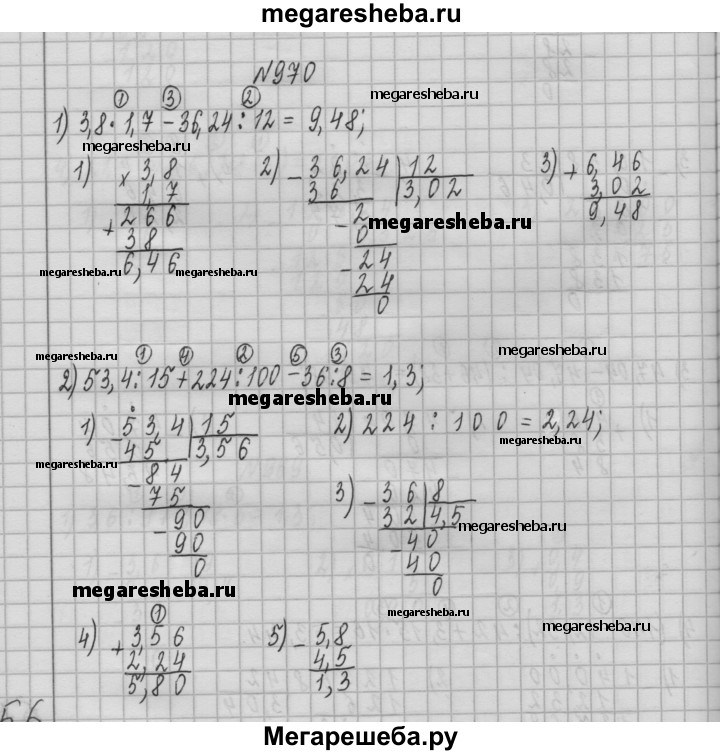 megaresheba.ru
№970
megaresheba.ru
① ③ ②
1) 3,8 · 1,7 - 36,24 : 12 = 9,48;
megaresheba.ru
1) × 3,8
1,7
+ 266
38
6,46
2) - 36,24 | 12
36 | 3,02
- 2
0
- 24
24
0
3) + 6,46
3,02
9,48
megaresheba.ru
megaresheba.ru megaresheba.ru
① ④ ② ⑤ ③
megaresheba.ru megaresheba.ru
2) 53,4 : 15 + 224 : 100 - 36 : 8 = 1,3;
megaresheba.ru
1) - 53,4 | 15
45 | 3,56
- 84
75
- 90
90
0
2) 224 : 100 = 2,24;
megaresheba.ru
megaresheba.ru
3) - 36 | 8
32 | 4,5
- 40
40
0
megaresheba.ru
megaresheba.ru
4) ①
+ 3,56
2,24
5,80
5) - 5,8
4,5
1,3
megaresheba.ru
megaresheba.ru
Мегарешеба.ру